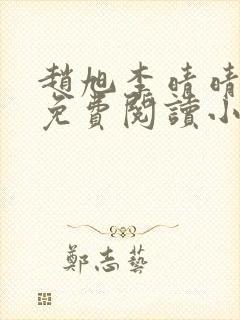 趙旭李晴晴
免費閱讀小
鄭志藝